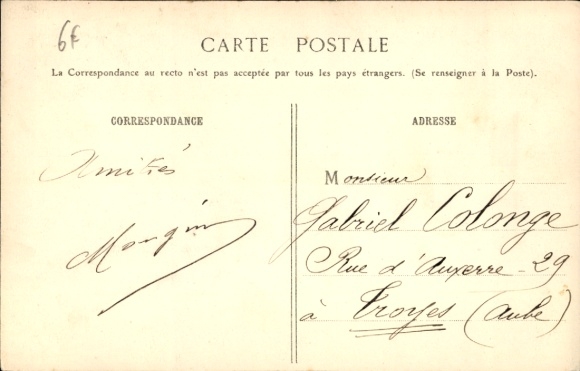 6€
CARTE POSTALE
La Correspondance au recto n'est pas acceptée par tous les pays étrangers. (Se renseigner à la Poste).
CORRESPONDANCE
Amitiés
Mangin
ADRESSE
Monsieur
Gabriel Colonge
Rue d'Auxerre - 29
à Troyes (Aube)